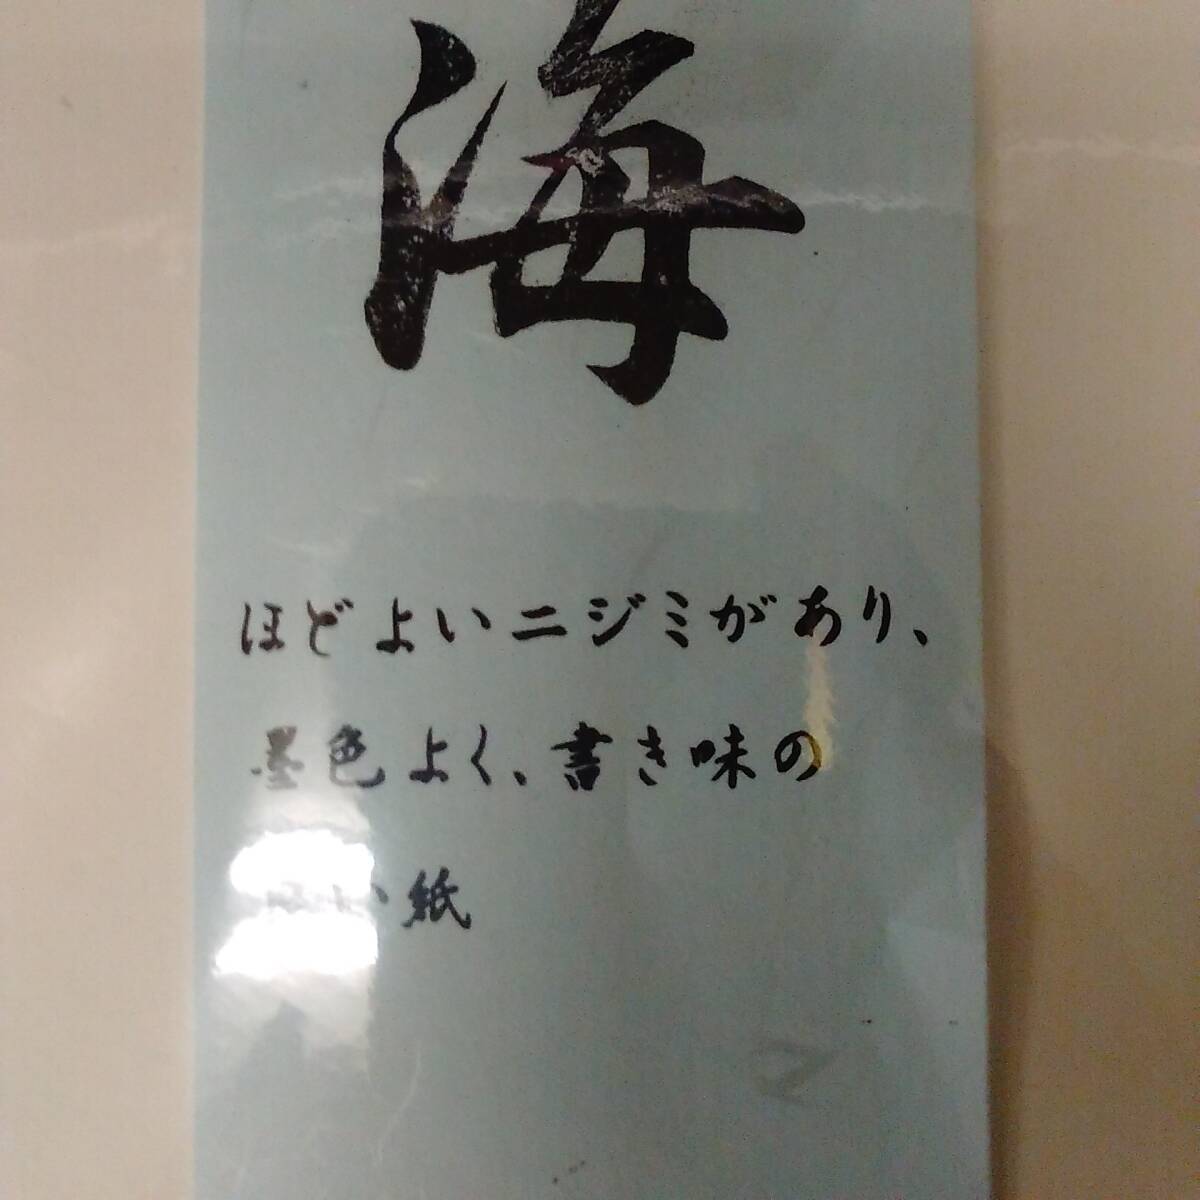 海
ほどよいニジミがあり、
墨色よく、書き味の
紙